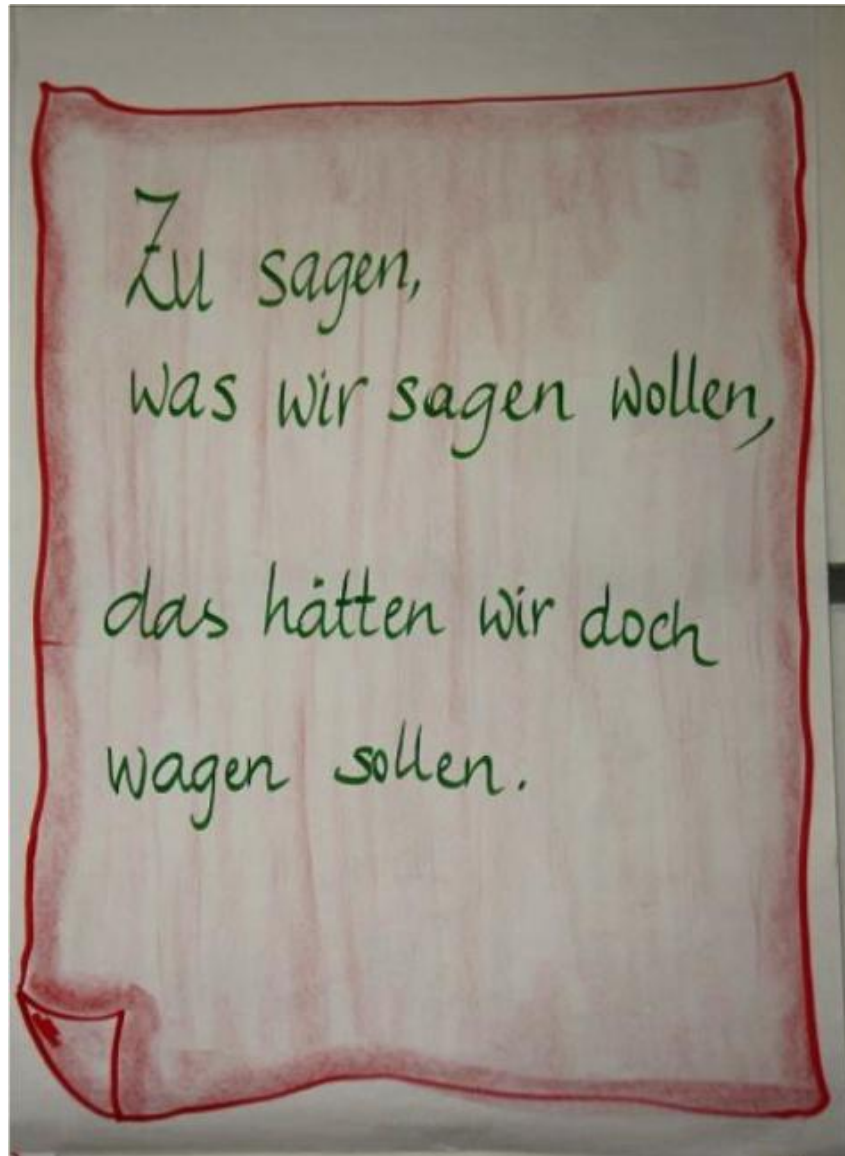 Zu sagen,
was wir sagen wollen,
das hätten wir doch
wagen sollen.